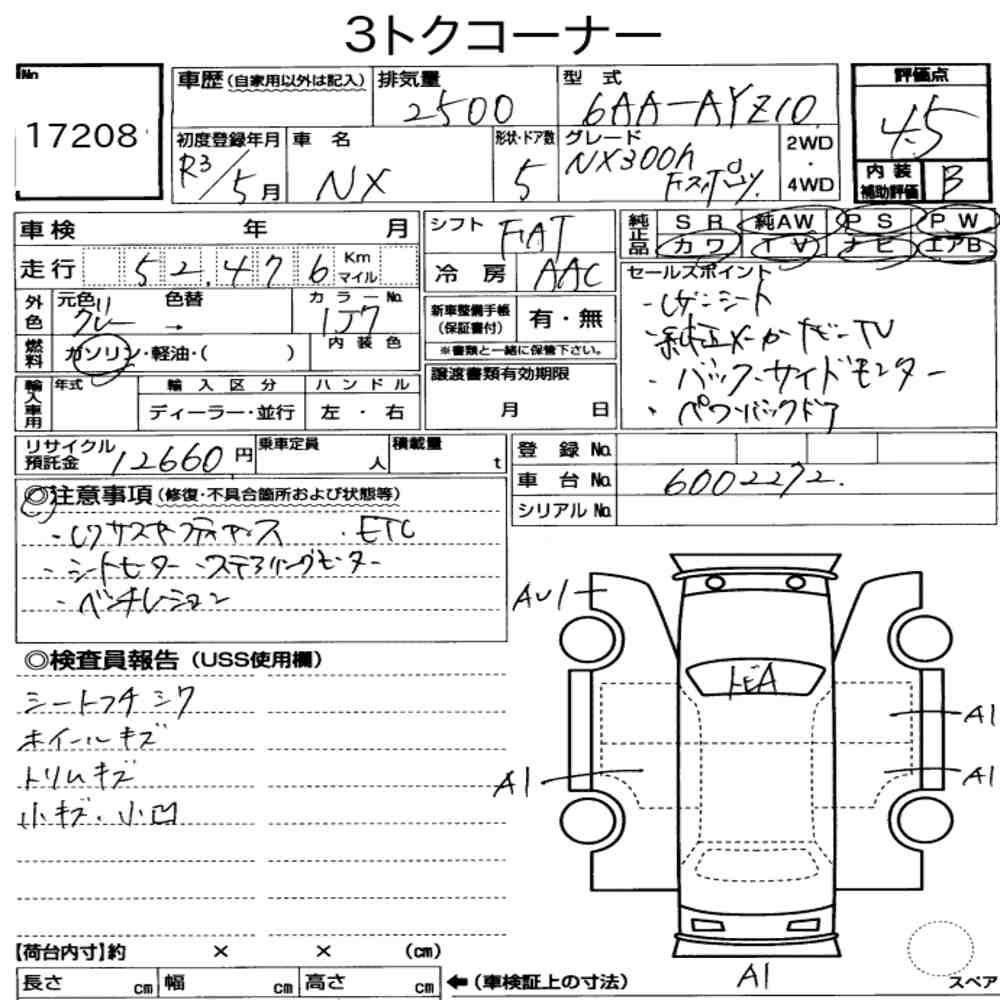 3トクコーナー
No
17208
車歴(自家用以外は記入)
排気量
2500
型 式
6AA-AYZ10
評価点
4.5
初度登録年月
R3/5月
車 名
NX
形状・ドア数
5
グレード
NX300h
Fスポーツ
2WD
・
4WD
内 装
補助評価
B
車検 年 月
シフト
FAT
純正品
SR 純AW PS PW
カワ TV ナビ エアB
走行 52,476 Km
マイル
冷 房
AAC
セールスポイント
・レザーシート
・純正メーカーナビ-TV
・バック-サイドモニター
・パワーバックドア
外色
元色
グレー →
色替
カラーNo.
1J7
新車整備手帳
(保証書付)
有・無
※書類と一緒に保管下さい。
燃料
ガソリン・軽油・( )
内 装 色
輸入車用
年式
輸 入 区 分
ディーラー・並行
ハ ン ド ル
左 ・ 右
譲渡書類有効期限
月 日
リサイクル
預託金
12660円
乗車定員
人
積載量
t
登 録 No.
車 台 No.
6002272.
シリアル No.
◎注意事項(修復・不具合箇所および状態等)
・レクサスセーフティセンス ・ETC
・シートヒーター・ステアリングヒーター
・ベンチレーション
◎検査員報告(USS使用欄)
シートフチシワ
ホイールキズ
トリムキズ
小キズ・小凹
AU1
トビA
A1
A1
A1
A1
【荷台内寸】約 × × (cm)
長さ cm 幅 cm 高さ cm
←(車検証上の寸法)
スペア